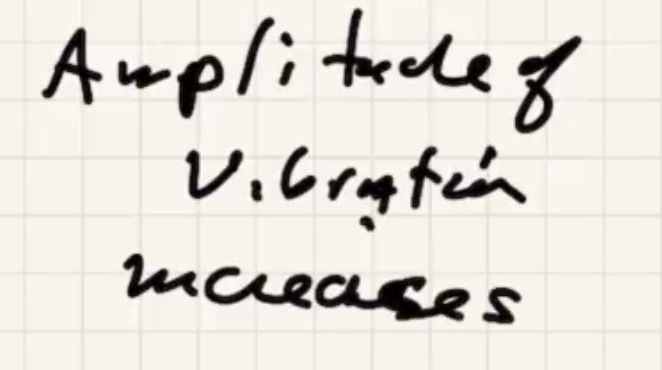 Amplitude of
Vibration
increases